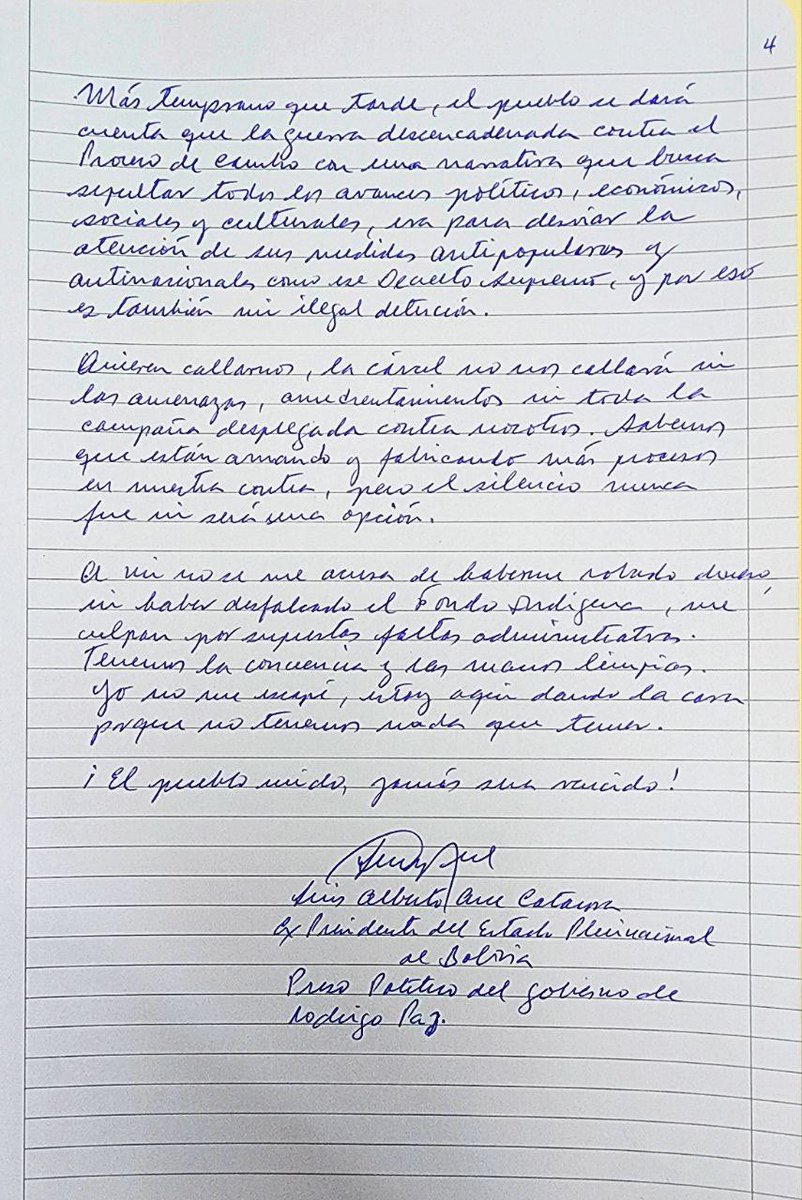 4
Más temprano que tarde, el pueblo se dará
cuenta que la guerra desencadenada contra el
Proceso de Cambio con una narrativa que busca
sepultar todos los avances políticos, económicos,
sociales y culturales, era para desviar la
atención de sus medidas antipopulares y
antinacionales como ese Decreto Supremo, y por eso
es también mi ilegal detención.
Quieren callarnos, la cárcel no nos callará ni
las amenazas, amedrentamientos ni toda la
campaña desplegada contra nosotros. Sabemos
que están armando y fabricando más procesos
en nuestra contra, pero el silencio nunca
fue ni será una opción.
A mi no se me acusa de haberme robado dinero,
ni haber desfalcado el Fondo Indígena, me
culpan por supuestas faltas administrativas.
Tenemos la conciencia y las manos limpias.
Yo no me escapé, estoy aquí dando la cara
porque no tenemos nada que temer.
¡El pueblo unido, jamás sera vencido!
Luis Alberto Arce Catacora
Ex Presidente del Estado Plurinacional
de Bolivia
Preso Político del gobierno de
Rodrigo Paz.